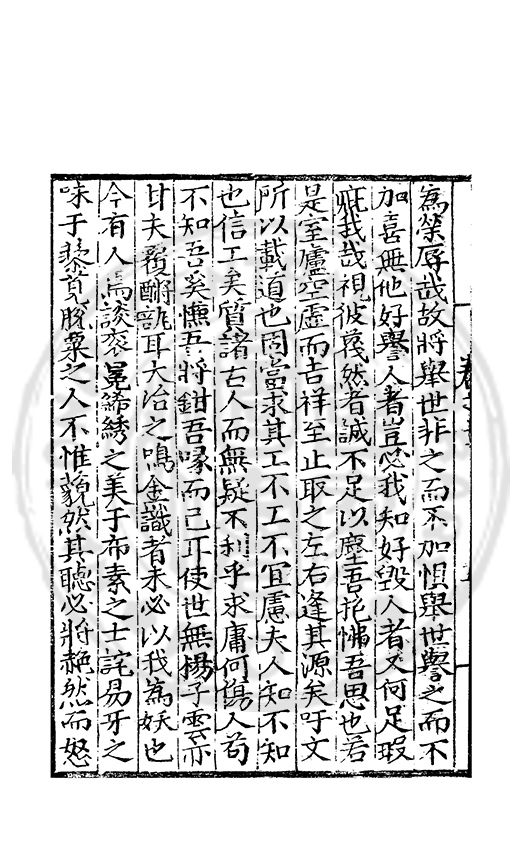 為榮辱哉故將舉世非之而不加懼舉世譽之而不
加喜無他好譽人者豈必我知好毀人者又何足瑕
疵我哉視彼蔑然者誠不足以塵吾抱慵吾思也若
是室廬空虛而吉祥至止取之左右逢其源矣吁文
所以載道也固當求其工不工不宜慮夫人知不知
也信工矣質諸古人而無疑不利乎求庸何傷人苟
不知吾奚憮吾將鉗吾喙而已耳使世無楊子雲亦
甘夫覆醬瓿耳大冶之鳴金識者未必以我為妖也
今有人焉談袞冕絺綉之美于布素之士詫易牙之
味于藜莧脫粟之人不惟藐然其聽必將艴然而怒
卷之